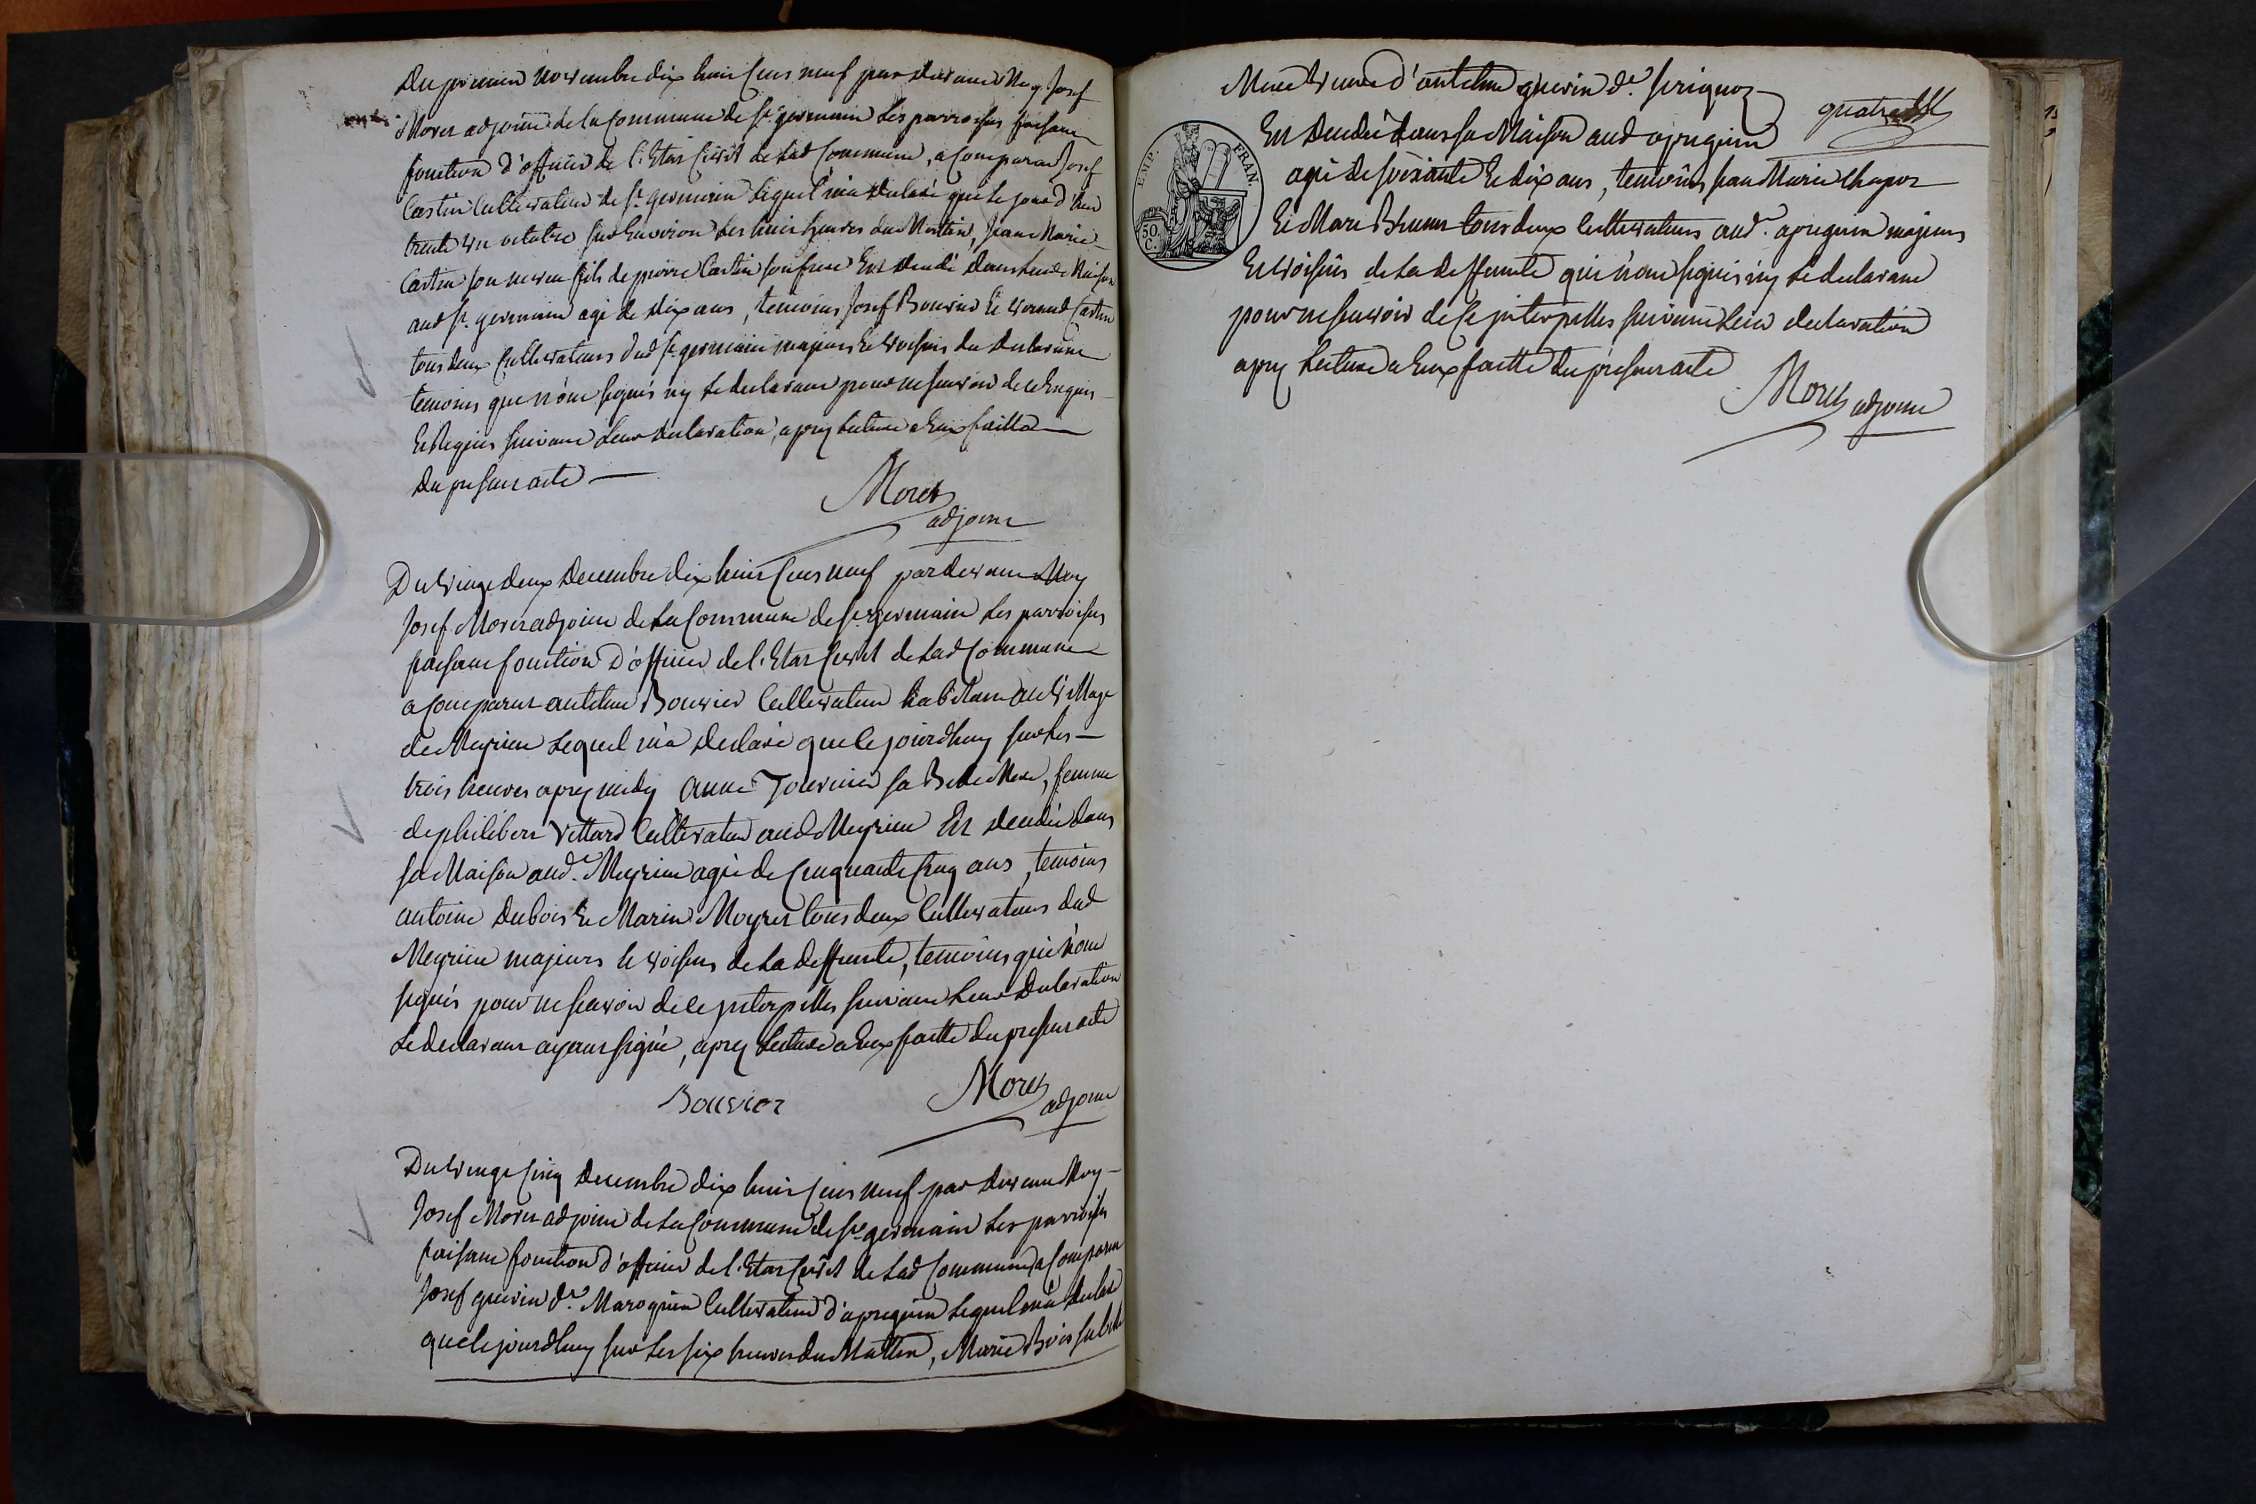 Du premier novembre dix huit cens neuf par devant Moy Josef
Moret adjoint de la Commune de St germain Les parroisses faisant
fonction d'officier de l'Etat Civil de lad Commune, a Comparu Josef
Castin Cultivateur de St germain Lequel m'a declaré que le jour d'hier
trente un octobre sur Environ Les huit heures du Mattin, Jean Marie
Castin son neveu fils de pierre Castin son frere Est decedé dans leur Maison
aud St germain agé de dix ans, temoins Josef Bouvier Et Castin
tous deux Cultivateurs dud St germain majeurs Et voisins du declarant
temoins que n'ont signés ny le declarant pour ne savoir de ce Enquis
Et Requis suivant Leur declaration, apres Lecture a Eux faitte
Du present acte
Moret
adjoint
Du vingt deux Decembre dix huit Cens neuf par devant Moy
Josef Moret adjoint de La Commune de St germain Les parroisses
faisant fonction D'officier de l'Etat Civil de Lad Commune
a Comparut antelme Bouvier Cultivateur habitant au village
de Meyrieu Lequel m'a Declaré que le jourdhuy sur Les
trois heures apres midy anne Tournier sa Belle Mere, femme
de philibert Vettard Cultivateur aud Meyrieu Est decedée dans
sa Maison aud. Meyrieu agée de Cinquante Cinq ans, temoins
antoine Dubois Et Marin Moyret tous deux Cultivateurs dud
Meyrieu majeurs Et voisins de La deffunte, temoins que n'ont
signés pour ne savoir de ce jnterpellés suivant Leur Declaration
Le declarant ayant signé, apres Lecture a Eux faitte du present acte
Bouvier
Moret
adjoint
Du vingt Cinq Decembre dix huit Cens neuf par devant Moy
Josef Moret adjoint de La Commune de St germain Les parroisses
faisant fonction d'officier de l'Etat Civil de Lad Commune a Comparu
Josef guerin dt. Maroquin Cultivateur d'apregnin Lequel m'a declaré
que le jourdhuy sur Les six heures du Mattin, Marie Bois sa belle
Mere veuve d'antelme guerin dt.
quatre
Est decedée dans sa Maison aud apregnin
EMP. FRAN.
50. C.
agée de soixante Et dix ans, temoins jean Marie Chapot
Et Marc Brunet tous deux Cultivateurs aud. apregnin majeurs
Et voisins de La deffunte qui n'ont signés ny Le declarant
pour ne savoir de ce jnterpellés suivant Leur declaration
apres Lecture a Eux faitte du present acte
Moret adjoint